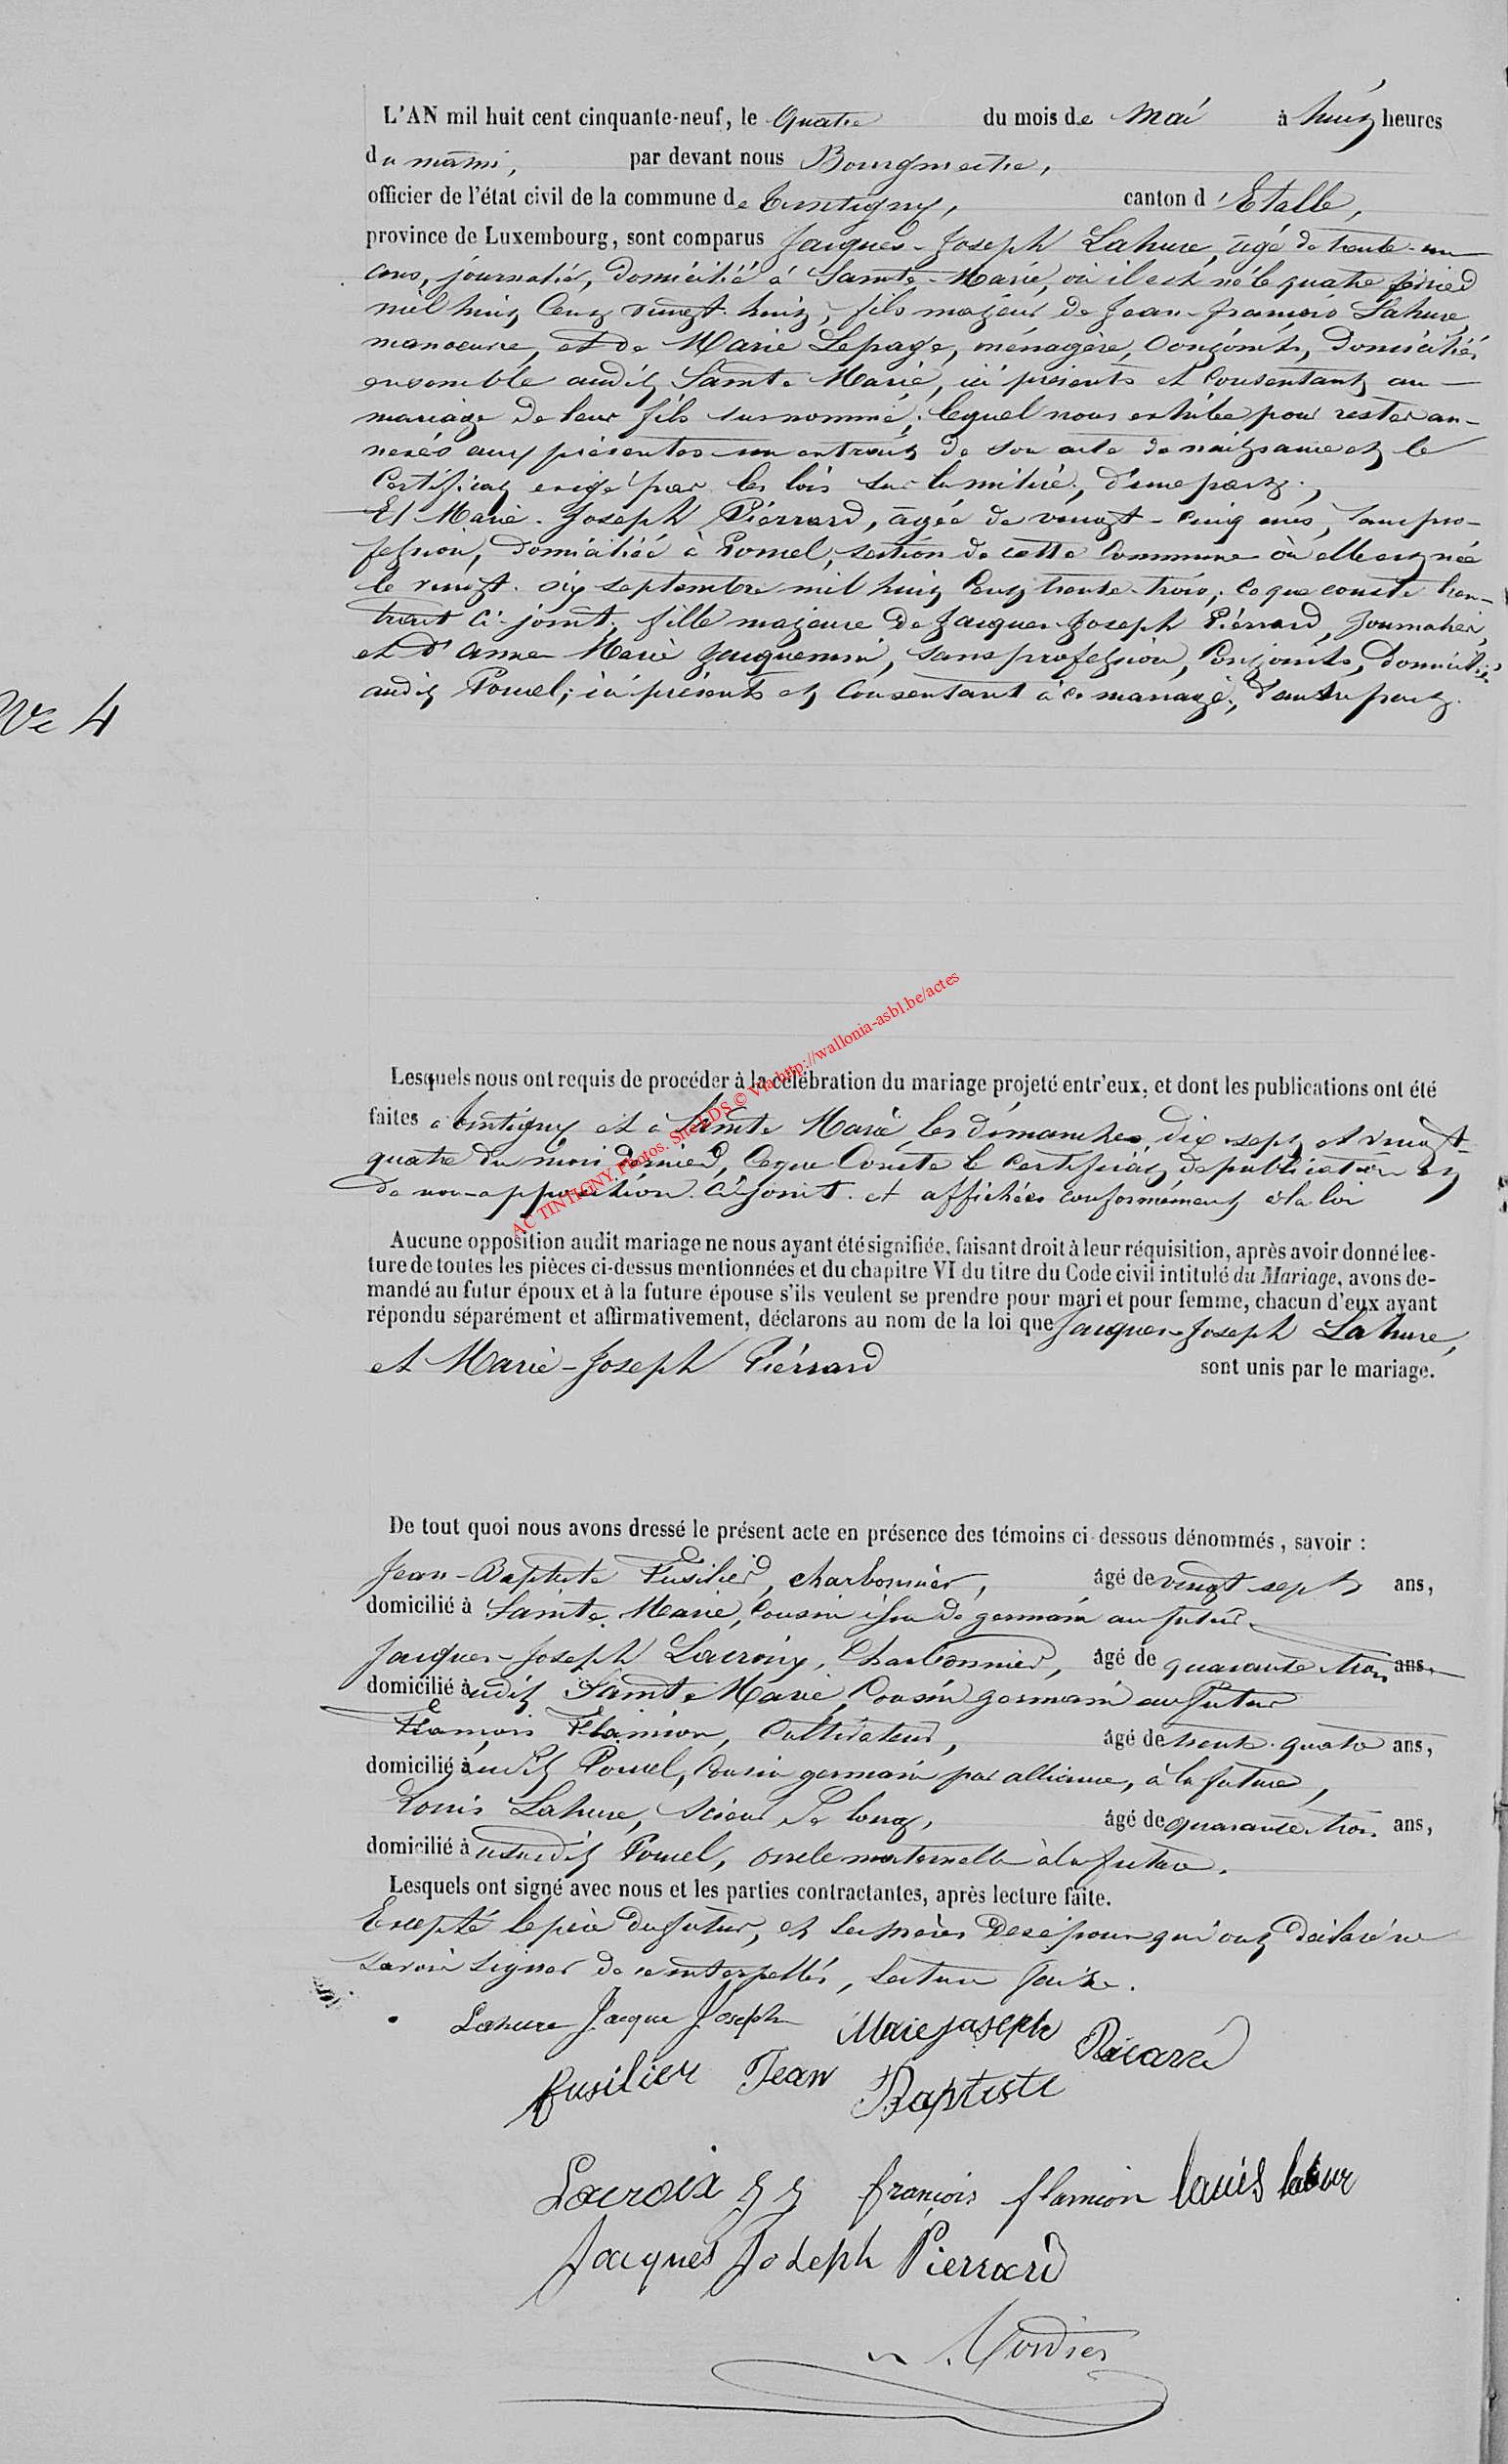 L'AN mil huit cent cinquante-neuf, le Quatre du mois de Mai à huit heures
du matin, par devant nous Bourgmestre,
officier de l'état civil de la commune de Tintigny, canton d'Etalle,
province de Luxembourg, sont comparus Jacques-Joseph Lahure, âgé de trente-un
ans, journalier, domicilié à Sainte-Marie, où il est né le quatre février
mil huit cent vingt-huit, fils majeur de Jean-François Lahure,
manoeuvre, et de Marie Lepage, ménagère, conjoints, domiciliés
ensemble audit Sainte Marie, ici présents et consentant au
mariage de leur fils susnommé; lequel nous exhibe pour rester an-
nexés aux présentes un extrait de son acte de naissance et le
Certificat exigé par les lois sur la milice, d'une part;
Et Marie-Joseph Piérrard, âgée de vingt-cinq ans, sans pro-
fession, domiciliée à Poncel, section de cette Commune où elle est née
le vingt-six septembre mil huit cent trente-trois, ce que conste l'ex-
trait ci-joint, fille majeure de Jacques-Joseph Piérrard, journalier,
et d'Anne Marie Jacquemin, sans profession, conjoints, domiciliés
audit Poncel, ici présents et consentant à ce mariage, d'autre part.
N° 4
Lesquels nous ont requis de procéder à la célébration du mariage projeté entr'eux, et dont les publications ont été
faites à Tintigny et à Sainte Marie les dimanches dix-sept et vingt-
quatre du mois dernier, ce que conste le certificat de publication et
de non-opposition ci-joint. et affichées conformément à la loi
Aucune opposition audit mariage ne nous ayant été signifiée, faisant droit à leur réquisition, après avoir donné lec-
ture de toutes les pièces ci-dessus mentionnées et du chapitre VI du titre du Code civil intitulé du Mariage, avons de-
mandé au futur époux et à la future épouse s'ils veulent se prendre pour mari et pour femme, chacun d'eux ayant
répondu séparément et affirmativement, déclarons au nom de la loi que Jacques-Joseph Lahure,
et Marie-Joseph Piérrard sont unis par le mariage.
AC TINTIGNY. Photos. Site LDS © Via http://wallonia-asbl.be/actes
De tout quoi nous avons dressé le présent acte en présence des témoins ci-dessous dénommés, savoir :
Jean-Baptiste Fusilier, charbonnier, âgé de vingt sept ans,
domicilié à Sainte Marie, cousin issu de germain au futur
Jacques-Joseph Lacroix, Charbonnier, âgé de quarante trois ans,
domicilié audit Sainte Marie, Cousin germain au futur
François Flamion, Cultivateur, âgé de trente-quatre ans,
domicilié audit Poncel, cousin germain par alliance, à la future,
Louis Lahure, Scieur de long, âgé de quarante trois ans,
domicilié à susdit Poncel, oncle maternelle à la future.
Lesquels ont signé avec nous et les parties contractantes, après lecture faite.
Excepté le père du futur, et les mères des époux qui ont déclaré ne
savoir signer de ce interpellés, lecture faite.
Lahure Jacque Joseph Marie joseph Piérard
fusilier Jean Baptiste
Lacroix J J françois flamion Louis lahure
Jacques Joseph Pierrard